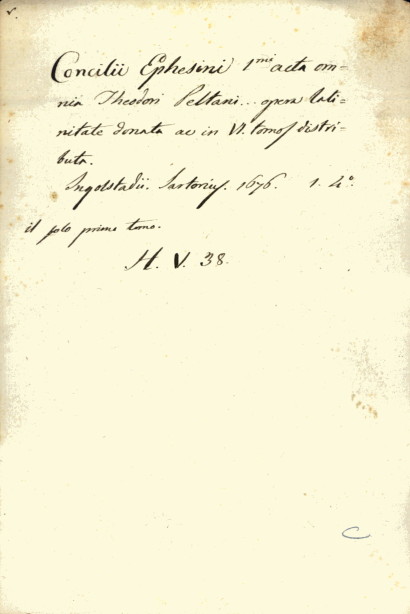 Concilii Ephesini 1mi acta om=
nia Theodori Peltani... opera lati=
nitate donata ac in VI. tomos distri=
buta.
Ingolstadii. Sartorius. 1676. 1. 4°.
il solo primo tomo.
H. V. 38.
C